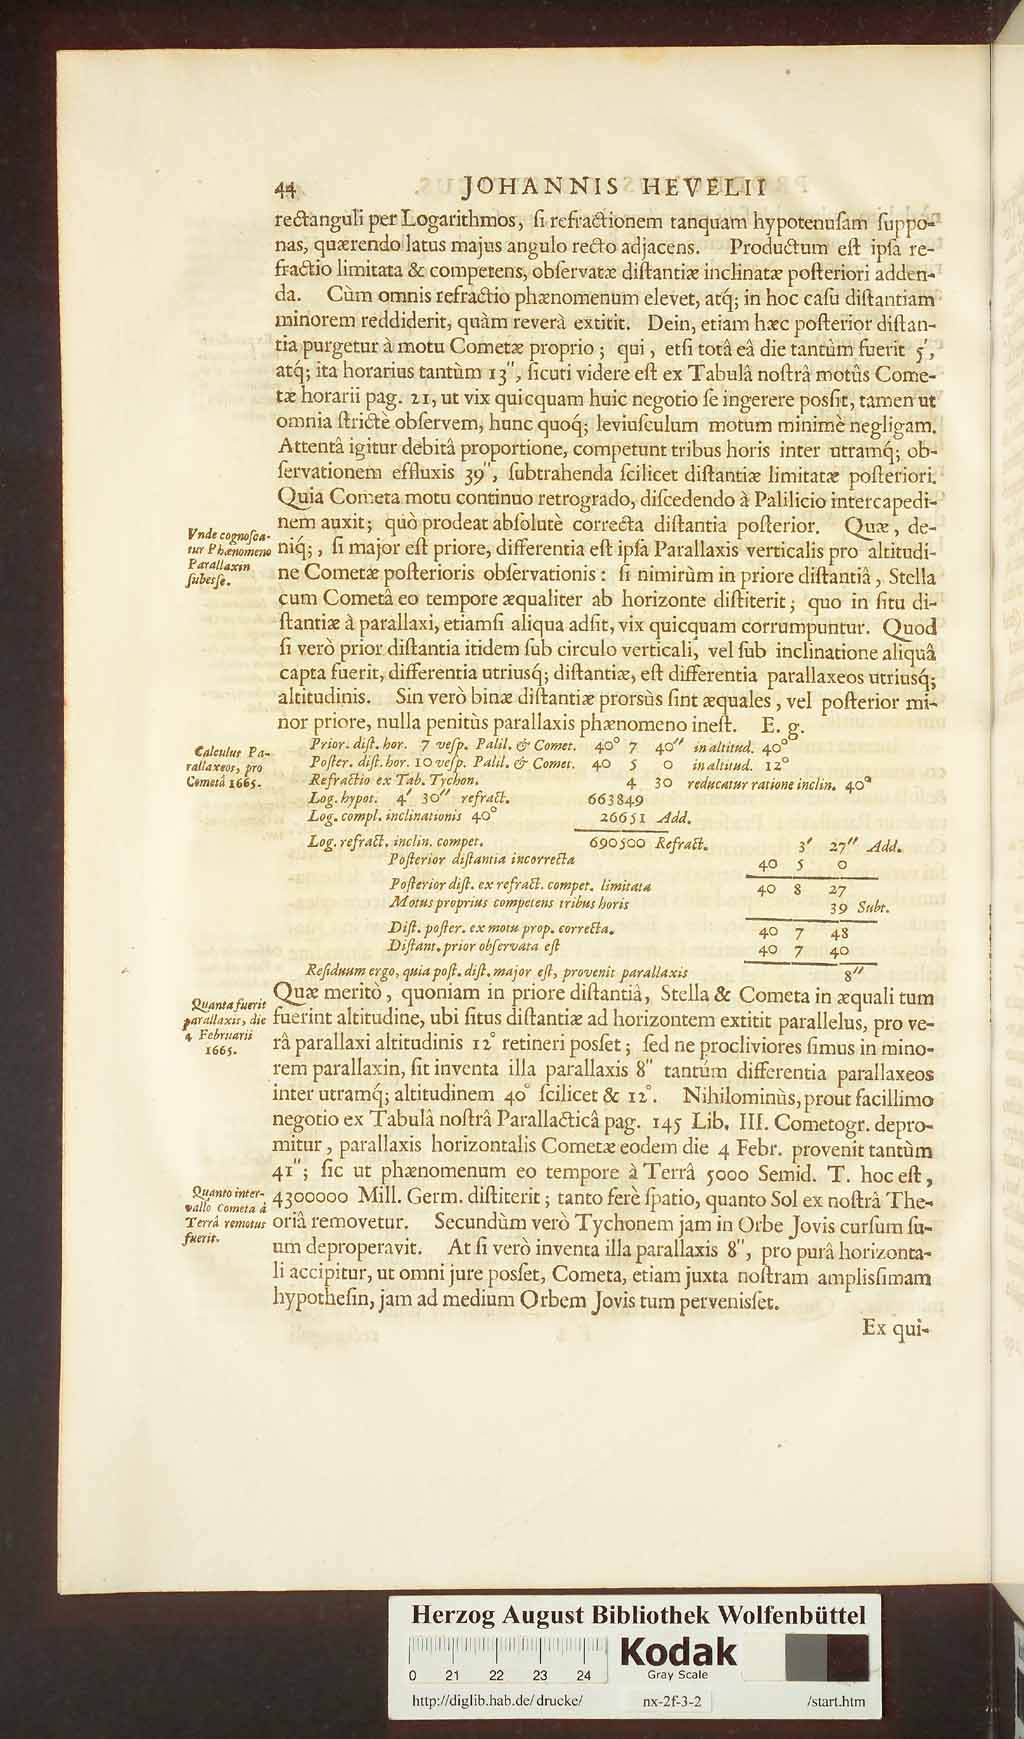 44 JOHANNIS HEVELII
rectanguli per Logarithmos, ſi refractionem tanquam hypotenuſam ſuppo-
nas, quærendo latus majus angulo recto adjacens. Productum eſt ipſa re-
fractio limitata & competens, obſervatæ diſtantiæ inclinatæ poſteriori adden-
da. Cùm omnis refractio phænomenum elevet, atq́; in hoc caſu diſtantiam
minorem reddiderit, quàm reverà extitit. Dein, etiam hæc poſterior diſtan-
tia purgetur à motu Cometæ proprio; qui, etſi totâ eâ die tantùm fuerit 5′,
atq́; ita horarius tantùm 13″, ſicuti videre eſt ex Tabulâ noſtrâ motûs Come-
tæ horarii pag. 21, ut vix quicquam huic negotio ſe ingerere posſit, tamen ut
omnia ſtrictè obſervem, hunc quoq́; leviuſculum motum minimè negligam.
Attentâ igitur debitâ proportione, competunt tribus horis inter utramq́; ob-
ſervationem effluxis 39″, ſubtrahenda ſcilicet diſtantiæ limitatæ poſteriori.
Quia Cometa motu continuo retrogrado, diſcedendo à Palilicio intercapedi-
nem auxit; quò prodeat abſolutè correcta diſtantia poſterior. Quæ, de-
Vnde cognoſca-
tur Phænomeno
Parallaxin
ſubeſſe.
niq́;, ſi major eſt priore, differentia eſt ipſa Parallaxis verticalis pro altitudi-
ne Cometæ poſterioris obſervationis: ſi nimirùm in priore diſtantiâ, Stella
cum Cometâ eo tempore æqualiter ab horizonte diſtiterit; quo in ſitu di-
ſtantiæ à parallaxi, etiamſi aliqua adſit, vix quicquam corrumpuntur. Quod
ſi verò prior diſtantia itidem ſub circulo verticali, vel ſub inclinatione aliquâ
capta fuerit, differentia utriusq́; diſtantiæ, eſt differentia parallaxeos utriusq́;
altitudinis. Sin verò binæ diſtantiæ prorsùs ſint æquales, vel poſterior mi-
nor priore, nulla penitùs parallaxis phænomeno ineſt. E. g.
Calculus Pa-
rallaxeos, pro
Cometâ 1665.
Prior. diſt. hor. 7 veſp. Palil. & Comet. 40° 7 40″ in altitud. 40°
Poſter. diſt. hor. 10 veſp. Palil. & Comet. 40 5 0 in altitud. 12°
Refractio ex Tab. Tychon. 4 30 reducatur ratione inclin. 40°
Log. hypot. 4′ 30″ refract. 663849
Log. compl. inclinationis 40° 26651 Add.
Log. refract. inclin. compet. 690500 Refract. 3′ 27″ Add.
Poſterior diſtantia incorrecta 40 5 0
Poſterior diſt. ex refract. compet. limitata 40 8 27
Motus proprius competens tribus horis 39 Subt.
Diſt. poſter. ex motu prop. correcta. 40 7 48
Diſtant. prior obſervata eſt 40 7 40
Reſiduum ergo, quia poſt. diſt. major eſt, provenit parallaxis 8″
Quanta fuerit
parallaxis, die
4 Februarii
1665.
Quæ meritò, quoniam in priore diſtantiâ, Stella & Cometa in æquali tum
fuerint altitudine, ubi ſitus diſtantiæ ad horizontem extitit parallelus, pro ve-
râ parallaxi altitudinis 12° retineri posſet; ſed ne procliviores ſimus in mino-
rem parallaxin, ſit inventa illa parallaxis 8″ tantùm differentia parallaxeos
inter utramq́; altitudinem 40° ſcilicet & 12°. Nihilominùs, prout facillimo
negotio ex Tabulâ noſtrâ Parallacticâ pag. 145 Lib. III. Cometogr. depro-
mitur, parallaxis horizontalis Cometæ eodem die 4 Febr. provenit tantùm
41″; ſic ut phænomenum eo tempore à Terrâ 5000 Semid. T. hoc eſt,
Quanto inter-
vallo Cometa à
Terrâ remotus
fuerit.
4300000 Mill. Germ. diſtiterit; tanto ferè ſpatio, quanto Sol ex noſtrâ The-
oriâ removetur. Secundùm verò Tychonem jam in Orbe Jovis curſum ſu-
um deproperavit. At ſi verò inventa illa parallaxis 8″, pro purâ horizonta-
li accipitur, ut omni jure posſet, Cometa, etiam juxta noſtram amplisſimam
hypotheſin, jam ad medium Orbem Jovis tum perveniſſet.
Ex qui-
Herzog August Bibliothek Wolfenbüttel
Kodak
Gray Scale
0 21 22 23 24
http://diglib.hab.de/drucke/ nx-2f-3-2 /start.htm